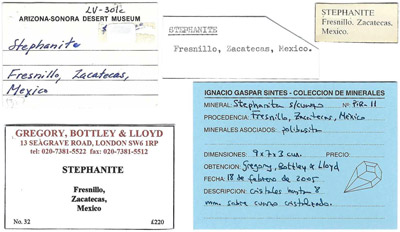 LV-3012
ARIZONA-SONORA DESERT MUSEUM
Stephanite
Fresnillo, Zacatecas,
Mexico
STEPHANITE
Fresnillo, Zacatecas, Mexico.
STEPHANITE
Fresnillo, Zacatecas,
Mexico.
GREGORY, BOTTLEY & LLOYD
13 SEAGRAVE ROAD, LONDON SW6 1RP
tel: 020-7381-5522 fax: 020-7381-5512
STEPHANITE
Fresnillo,
Zacatecas,
Mexico
No. 32 £220
IGNACIO GASPAR SINTES - COLECCION DE MINERALES
MINERAL: Stephanita s/cuarzo Nº: PiR-11
PROCEDENCIA: Fresnillo, Zacatecas, México
MINERALES ASOCIADOS: polibasita
DIMENSIONES: 9x7x3 cm. PRECIO:
OBTENCION: Gregory, Bottley & Lloyd
FECHA: 18 de febrero de 2005
DESCRIPCION: cristales hasta 8
mm. sobre cuarzo cristalizado.